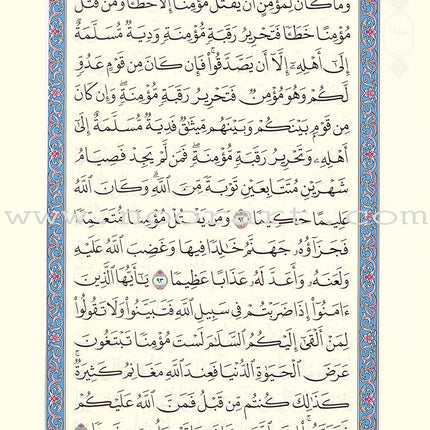 وَمَا كَانَ لِمُؤْمِنٍ أَن يَقْتُلَ مُؤْمِنًا إِلَّا خَطَـًٔا وَمَن قَتَلَ
مُؤْمِنًا خَطَـًٔا فَتَحْرِيرُ رَقَبَةٍ مُّؤْمِنَةٍ وَدِيَةٌ مُّسَلَّمَةٌ
إِلَىٰٓ أَهْلِهِۦٓ إِلَّآ أَن يَصَّدَّقُوا۟ ۚ فَإِن كَانَ مِن قَوْمٍ عَدُوٍّ
لَّكُمْ وَهُوَ مُؤْمِنٌ فَتَحْرِيرُ رَقَبَةٍ مُّؤْمِنَةٍ ۖ وَإِن كَانَ
مِن قَوْمٍۭ بَيْنَكُمْ وَبَيْنَهُم مِّيثَٰقٌ فَدِيَةٌ مُّسَلَّمَةٌ إِلَىٰٓ
أَهْلِهِۦ وَتَحْرِيرُ رَقَبَةٍ مُّؤْمِنَةٍ ۖ فَمَن لَّمْ يَجِدْ فَصِيَامُ
شَهْرَيْنِ مُتَتَابِعَيْنِ تَوْبَةً مِّنَ ٱللَّهِ ۗ وَكَانَ ٱللَّهُ
عَلِيمًا حَكِيمًا ٩٢ وَمَن يَقْتُلْ مُؤْمِنًا مُّتَعَمِّدًا
فَجَزَآؤُهُۥ جَهَنَّمُ خَٰلِدًا فِيهَا وَغَضِبَ ٱللَّهُ عَلَيْهِ
وَلَعَنَهُۥ وَأَعَدَّ لَهُۥ عَذَابًا عَظِيمًا ٩٣ يَٰٓأَيُّهَا ٱلَّذِينَ
ءَامَنُوٓا۟ إِذَا ضَرَبْتُمْ فِى سَبِيلِ ٱللَّهِ فَتَبَيَّنُوا۟ وَلَا تَقُولُوا۟
لِمَنْ أَلْقَىٰٓ إِلَيْكُمُ ٱلسَّلَٰمَ لَسْتَ مُؤْمِنًا تَبْتَغُونَ
عَرَضَ ٱلْحَيَوٰةِ ٱلدُّنْيَا فَعِندَ ٱللَّهِ مَغَانِمُ كَثِيرَةٌ ۚ
كَذَٰلِكَ كُنتُم مِّن قَبْلُ فَمَنَّ ٱللَّهُ عَلَيْكُمْ